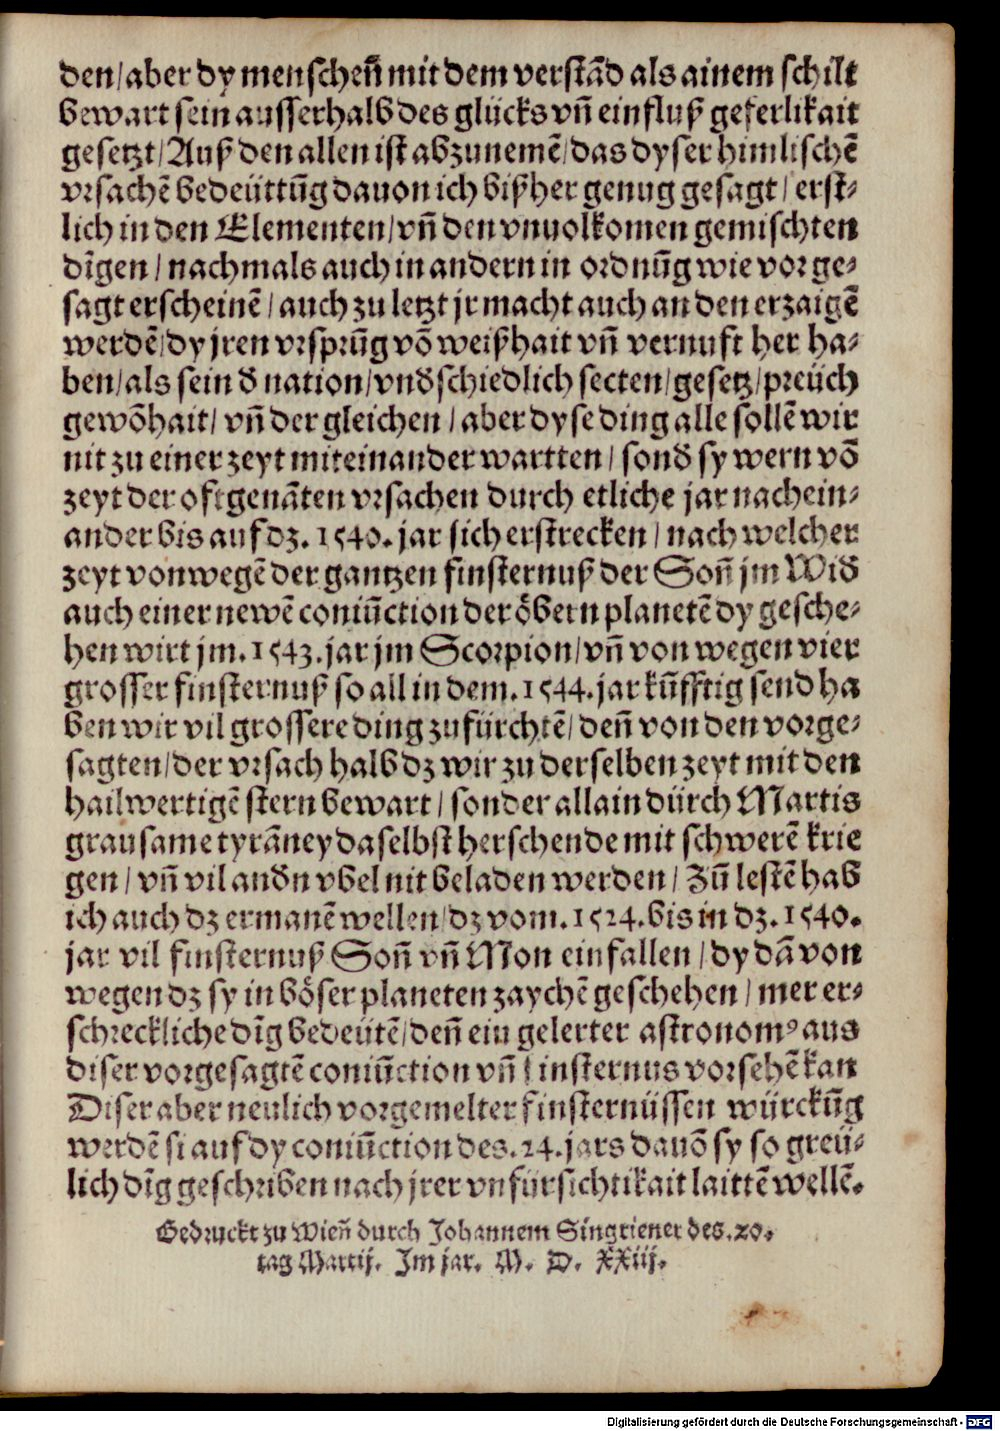 den/ aber dy menschen̄ mit dem verstād als ainem schilt
bewart sein ausserhalb des glücks vn̄ einfluß geferlikait
gesetzt/ Auß den allen ist abzunemē/ das dyser himlischē
vrsachē bedeüttūg dauon ich bißher genug gesagt/ erst⸗
lich in den Elementen/ vn̄ den vnuolkomen gemischten
dīgen/ nachmals auch in andern in ordnūg wie vor ge⸗
sagt erscheinē/ auch zu letzt jr macht auch an den erzaigē
werdē/ dy jren vrsprūg vō weißhait vn̄ vernuft her ha⸗
ben/ als sein đ nation/ vnđschiedlich secten/ gesetz/ preüch
gewōhait/ vn̄ der gleichen/ aber dyse ding alle sollē wir
nit zu einer zeyt miteinander wartten/ sonđ sy wern vō
zeyt der oftgenāten vrsachen durch etliche jar nachein⸗
ander bis auf dz. 1540. jar sich erstrecken/ nach welcher
zeyt von wegē der gantzen finsternuß der Son̄ jm Widđ
auch einer newē coniūction der öbern planetē dy gesche⸗
hen wirt jm. 1543. jar jm Scorpion/ vn̄ von wegen vier
grosser finsternuß so all in dem. 1544. jar kūfftig send ha
ben wir vil grossere ding zufürchtē/ den̄ von den vorge⸗
sagten/ der vrsach halb dz wir zu derselben zeyt mit den
hailwertigē stern bewart/ sonder allain dürch Martis
grausame tyrāney daselbst herschende mit schwerē krie
gen/ vn̄ vil andn vbel nit beladen werden/ Zū lestē hab
ich auch dz ermanē wellen/ dz vom. 1524. bis in dz. 1540.
jar vil finsternuß Son̄ vn̄ Mon einfallen/ dy dā von
wegen dz sy in böser planeten zaychē geschehen/ mer er⸗
schreckliche dīg bedeütē/ den̄ ein gelerter astronomꝰ aus
diser vorgesagtē coniūction vn̄ finsternus vorsehē kan
Diser aber neulich vorgemelter finsternüssen würckūg
werdē si auf dy coniūction des. 24. jars dauō sy so greü⸗
lich dīg geschriben nach jrer vnfürsichtikait laittē wellē.
Gedruckt zu Wien̄ durch Johannem Singriener des. 20.
tag Martij. Im jar. M. D. XXiij.
Digitalisierung gefördert durch die Deutsche Forschungsgemeinschaft - DFG